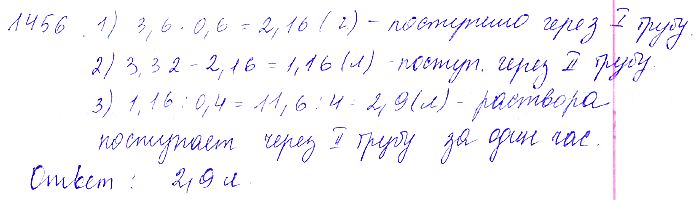 1456 1) 3,6 · 0,6 = 2,16 (л) - поступило через I трубу.
2) 3,32 - 2,16 = 1,16 (л) - поступ. через II трубу.
3) 1,16 : 0,4 = 11,6 : 4 = 2,9 (л) - раствора
поступает через II трубу за один час.
Ответ: 2,9 л.